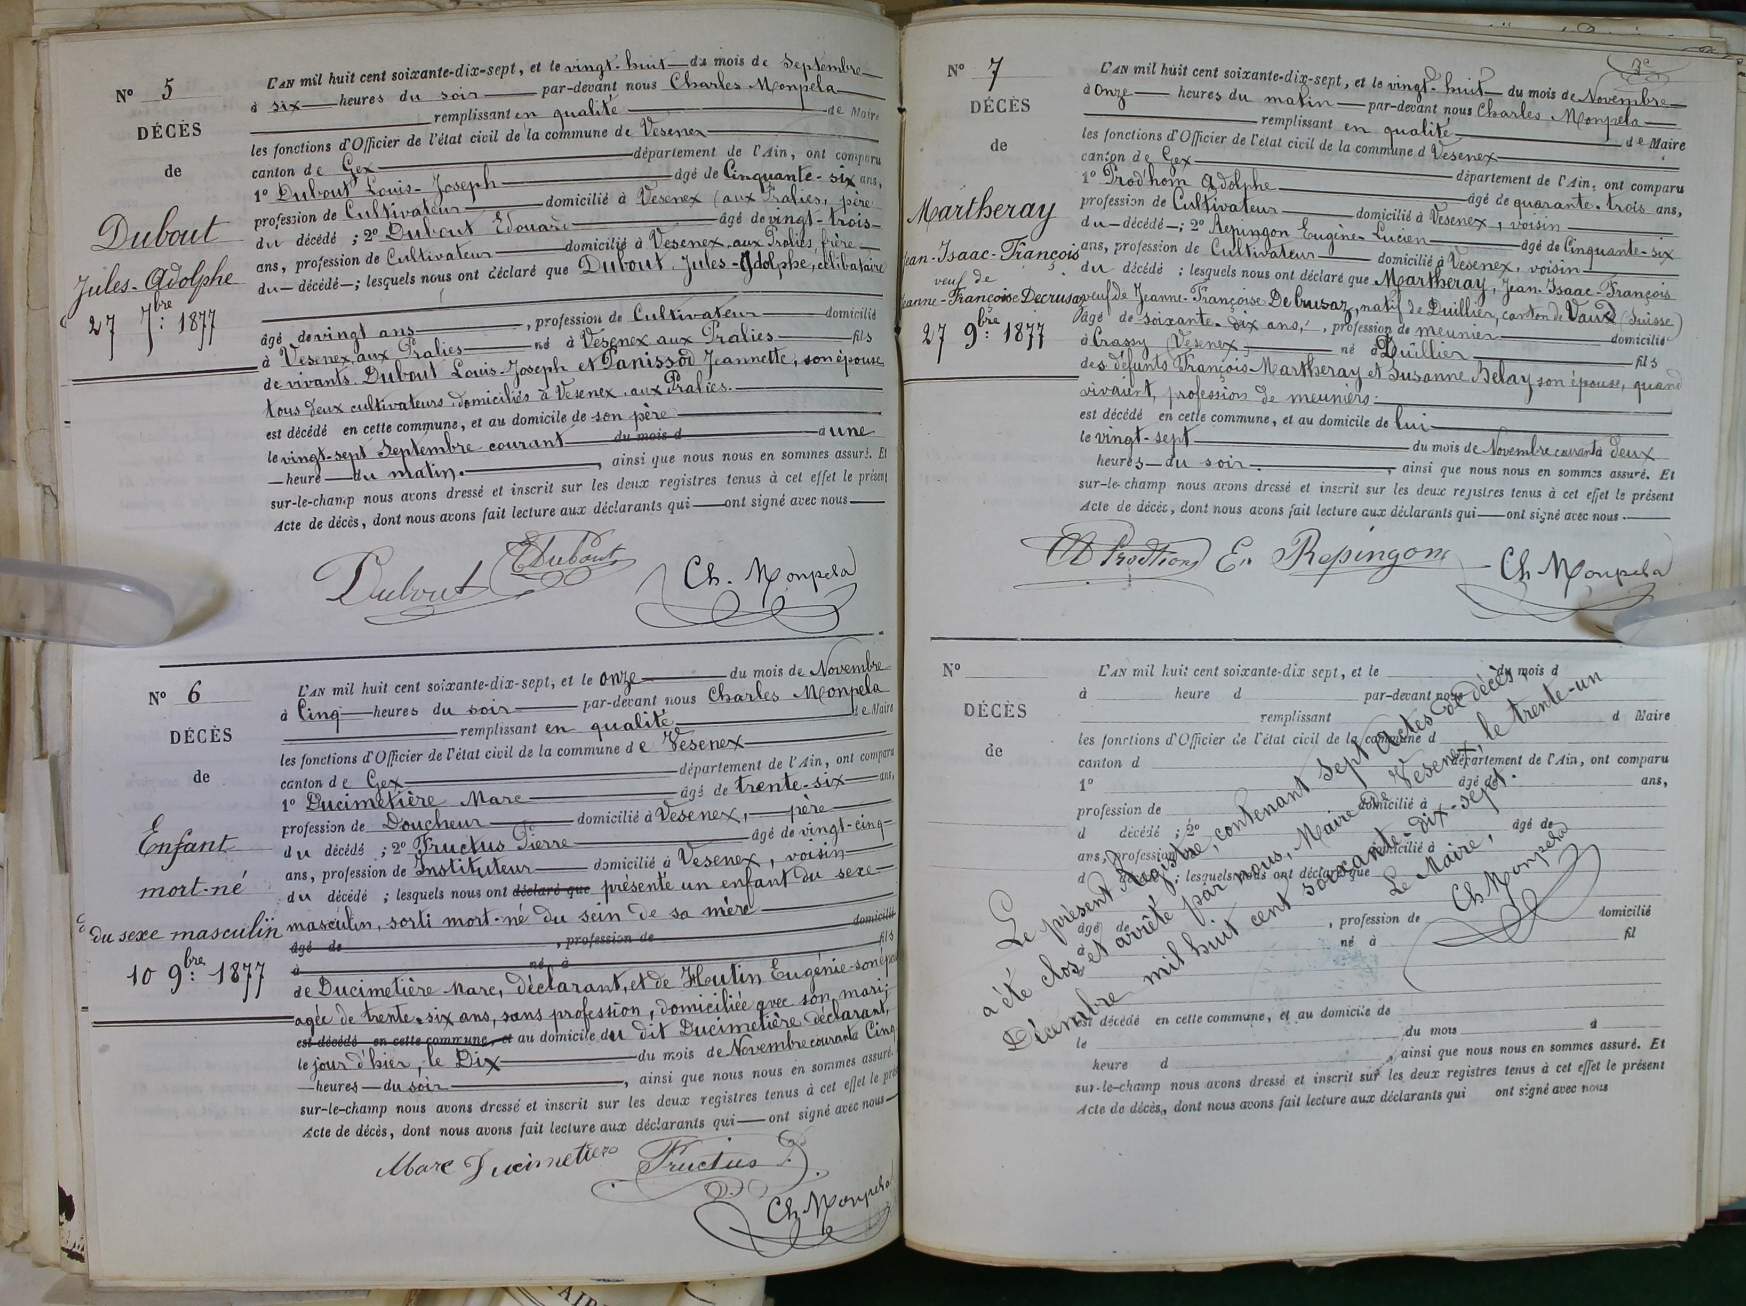 N° 5
DÉCÈS
de
Dubout
Jules-Adolphe
27 7bre: 1877
L'AN mil huit cent soixante-dix-sept, et le vingt-huit du mois de Septembre
à six heures du soir par-devant nous Charles Monpela
remplissant en qualité de Maire
les fonctions d'Officier de l'état civil de la commune de Vesenex
canton de Gex département de l'Ain, ont comparu
1° Dubout Louis-Joseph âgé de Cinquante-six ans,
profession de Cultivateur domicilié à Vesenex (aux Pralies, père
du décédé ; 2° Dubout Edouard âgé de vingt-trois
ans, profession de Cultivateur domicilié à Vesenex, aux Pralies, frère
du décédé ; lesquels nous ont déclaré que Dubout, Jules-Adolphe, célibataire
âgé de vingt ans , profession de Cultivateur domicilié
à Vesenex, aux Pralies né à Vesenex aux Pralies fils
de vivants Dubout Louis-Joseph et Panissod Jeannette, son épouse
tous deux cultivateurs, domiciliés à Vesenex, aux Pralies.
est décédé en cette commune, et au domicile de son père
le vingt-sept Septembre courant du mois d à une
heure du matin. , ainsi que nous nous en sommes assuré. Et
sur-le-champ nous avons dressé et inscrit sur les deux registres tenus à cet effet le présent
Acte de décès, dont nous avons fait lecture aux déclarants qui ont signé avec nous
Dubout E Dubout Ch. Monpela
N° 6
DÉCÈS
de
Enfant
mort-né
du sexe masculin
10 9bre: 1877
L'AN mil huit cent soixante-dix-sept, et le onze du mois de Novembre
à Cinq heures du soir par-devant nous Charles Monpela
remplissant en qualité de Maire
les fonctions d'Officier de l'état civil de la commune de Vesenex
canton de Gex département de l'Ain, ont comparu
1° Ducimetière Marc âgé de trente-six ans,
profession de Doucheur domicilié à Vesenex, père
du décédé ; 2° Fructus Pierre âgé de vingt-cinq
ans, profession de Instituteur domicilié à Vesenex, voisin
du décédé ; lesquels nous ont déclaré que présenté un enfant du sexe
masculin, sorti mort-né du sein de sa mère
âgé de , profession de domicilié
à né à fils
de Ducimetière Marc, déclarant, et de Houtin Eugénie son épouse
agée de trente-six ans, sans profession, domiciliée avec son mari;
est décédé en cette commune, et au domicile du dit Ducimetière, déclarant,
le jour d'hier, le Dix du mois de Novembre courant à Cinq
heures du soir , ainsi que nous nous en sommes assuré.
sur-le-champ nous avons dressé et inscrit sur les deux registres tenus à cet effet le pré
Acte de décès, dont nous avons fait lecture aux déclarants qui ont signé avec nous
Marc Ducimetière Fructus P. Ch Monpela
N° 7
DÉCÈS
de
Martheray
Jean-Isaac-François
veuf de
Jeanne-Françoise Decrusaz
27 9bre: 1877
L'AN mil huit cent soixante-dix-sept, et le vingt-huit du mois de Novembre
à onze heures du matin par-devant nous Charles Monpela
remplissant en qualité de Maire
les fonctions d'Officier de l'état civil de la commune d Vesenex
canton de Gex département de l'Ain, ont comparu
1° Prod'hom Adolphe âgé de quarante-trois ans,
profession de Cultivateur domicilié à Vesenex, voisin
du décédé ; 2° Repingon Eugène-Lucien âgé de Cinquante-six
ans, profession de Cultivateur domicilié à Vesenex, voisin
du décédé ; lesquels nous ont déclaré que Martheray, Jean-Isaac-François
veuf de Jeanne-Françoise Decrusaz, natif de Duillier, canton de Vaud (Suisse)
âgé de soixante-dix ans, , profession de meunier domicilié
à Crassy (Vesenex) né à Duillier fils
des défunts François Martheray et Susanne Belay son épouse, quand
vivaient, profession de meuniers.
est décédé en cette commune, et au domicile de lui
le vingt-sept du mois de Novembre courant à deux
heures du soir. , ainsi que nous nous en sommes assuré. Et
sur-le-champ nous avons dressé et inscrit sur les deux registres tenus à cet effet le présent
Acte de décès, dont nous avons fait lecture aux déclarants qui ont signé avec nous
A Prodhom En Repingon Ch Monpela
N°
DÉCÈS
de
L'AN mil huit cent soixante-dix sept, et le du mois d
à heure d par-devant nous
remplissant d Maire
les fonctions d'Officier de l'état civil de la commune d
canton d département de l'Ain, ont comparu
1° âgé de ans,
profession de domicilié à
d décédé ; 2° âgé de
ans, profession domicilié à
d décédé ; lesquels nous ont déclaré que
âgé de , profession de domicilié
à né à fil
est décédé en cette commune, et au domicile de
le du mois d
heure d , ainsi que nous nous en sommes assuré. Et
sur-le-champ nous avons dressé et inscrit sur les deux registres tenus à cet effet le présent
Acte de décès, dont nous avons fait lecture aux déclarants qui ont signé avec nous
Le présent Registre, contenant sept Actes de décès
a été clos et arrêté par nous, Maire de Vesenex, le trente-un
Décembre mil huit cent soixante-dix-sept.
Le Maire,
Ch Monpela